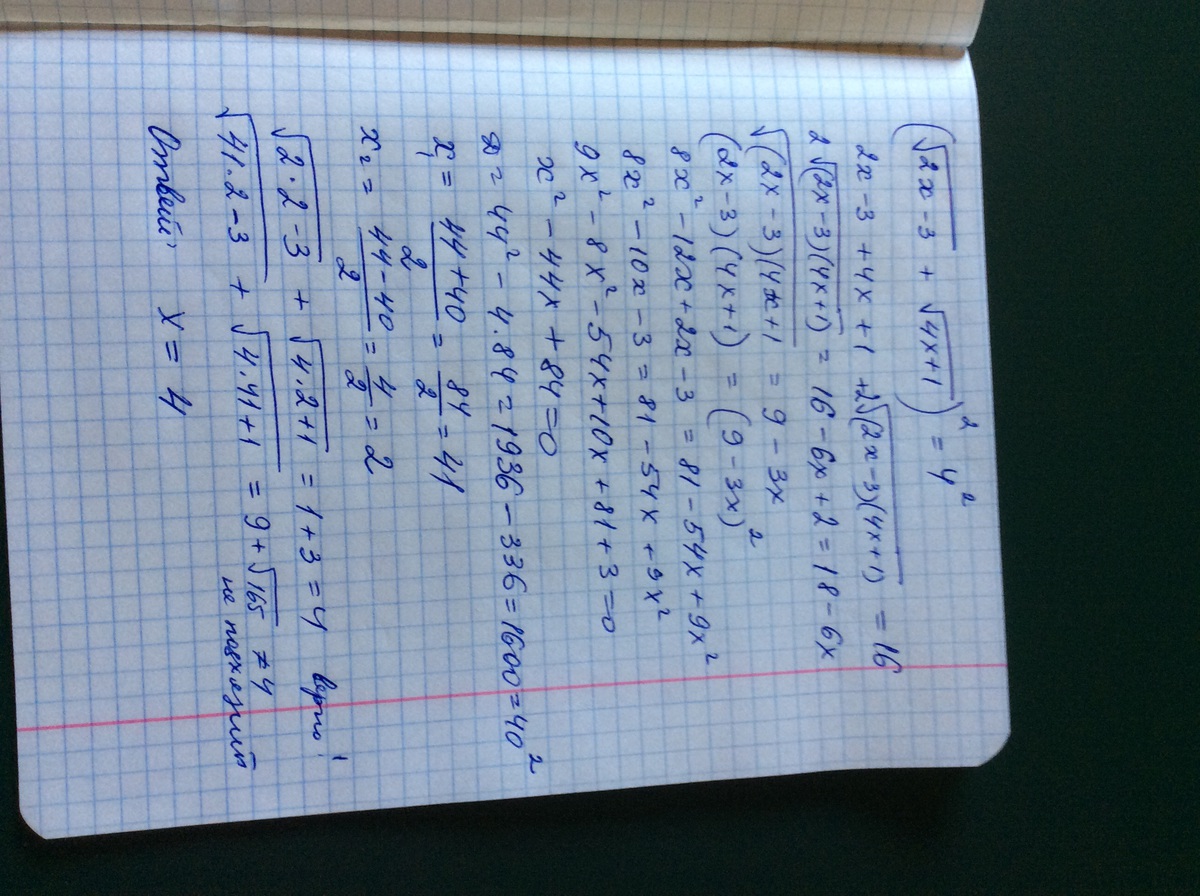 (√2x-3 + √4x+1)² = 4²
2x-3+4x+1 +2√(2x-3)(4x+1) = 16
2√(2x-3)(4x+1) = 16-6x+2 = 18-6x
√(2x-3)(4x+1 = 9-3x
(2x-3)(4x+1) = (9-3x)²
8x²-12x+2x-3 = 81-54x+9x²
8x²-10x-3 = 81-54x+9x²
9x²-8x²-54x+10x+81+3=0
x²-44x+84=0
D = 44²-4.84 = 1936-336 = 1600 = 40²
x₁ = 44+40/2 = 84/2 = 41
x₂ = 44-40/2 = 4/2 = 2
√2·2-3 + √4.2+1 = 1+3 = 4 верно!
√41.2-3 + √4.41+1 = 9+√165 ≠4
не подходит
Ответ: x = 4